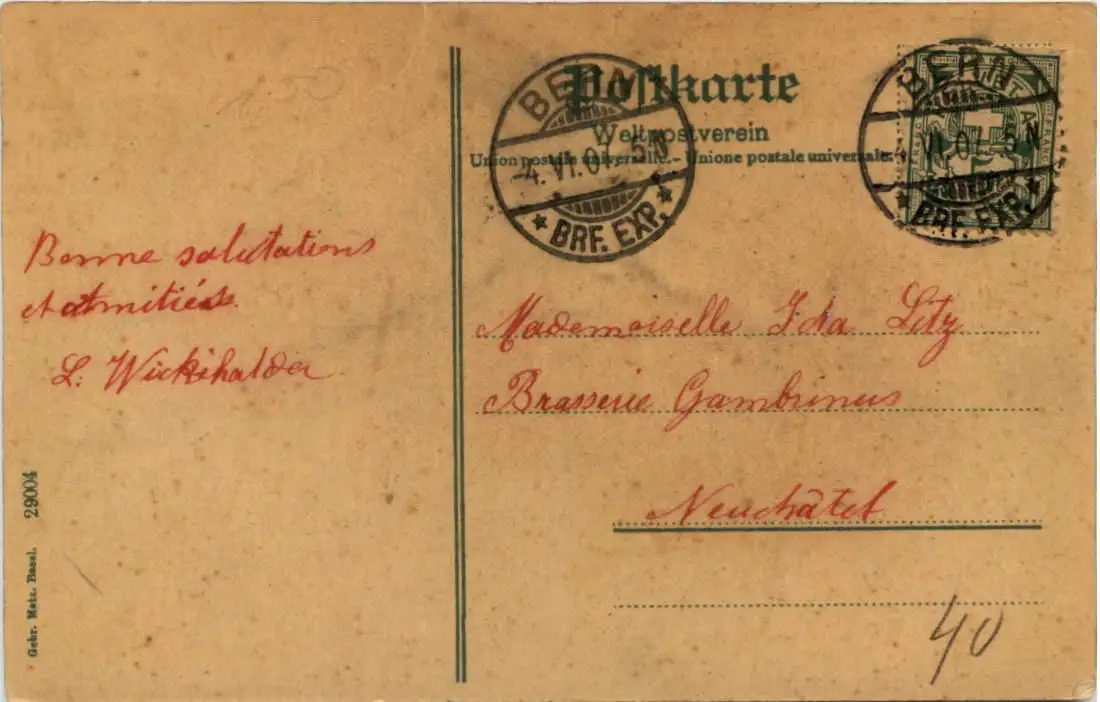 Postkarte
Weltpostverein
Union postale universelle. - Unione postale universale.
BERN
-4. VI. 07. 5N
BRF. EXP.
BERN
-4. VI. 07. 5N
BRF. EXP.
Bonne salutations
et amitiés.
L. Wickihalder
Mademoiselle Ida Litz
Brasserie Gambrinus
Neuchâtel
40
Gebr. Metz. Basel. 29004